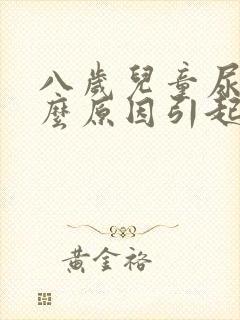 八歲兒童尿
麼原因引起
黃金裕